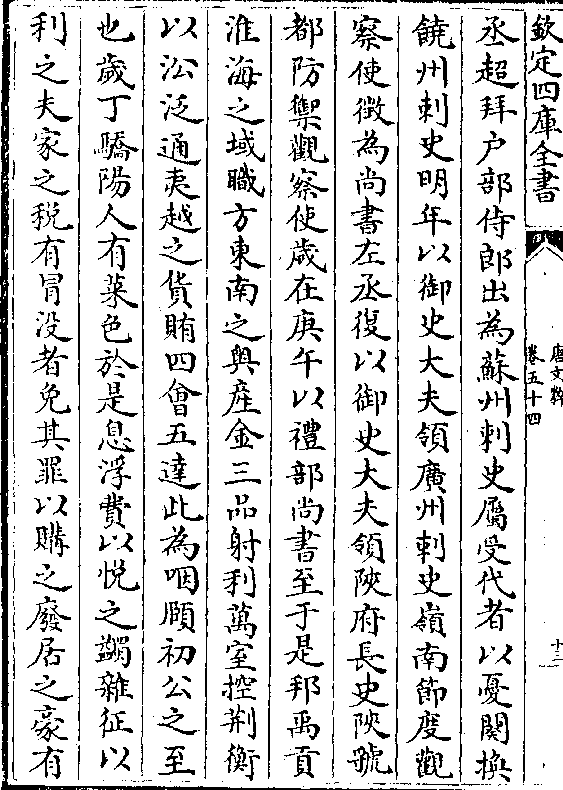 欽定四庫全書
唐文粹
卷五十四
十三
丞超拜户部侍郎出為蘇州刺史屬受代者以憂闋換
饒州刺史明年以御史大夫領廣州刺史嶺南節度觀
察使徴為尚書左丞復以御史大夫領陜府長史陜虢
都防禦觀察使歲在庚午以禮部尚書至于是邦禹貢
淮海之域職方東南之奥産金三品射利萬室控荆衡
以㳂泛通夷越之貨賄四㑹五達此為咽頤初公之至
也歲丁驕陽人有菜色於是息浮費以悦之蠲雜征以
利之夫家之税有冒没者免其罪以購之廢居之豪有